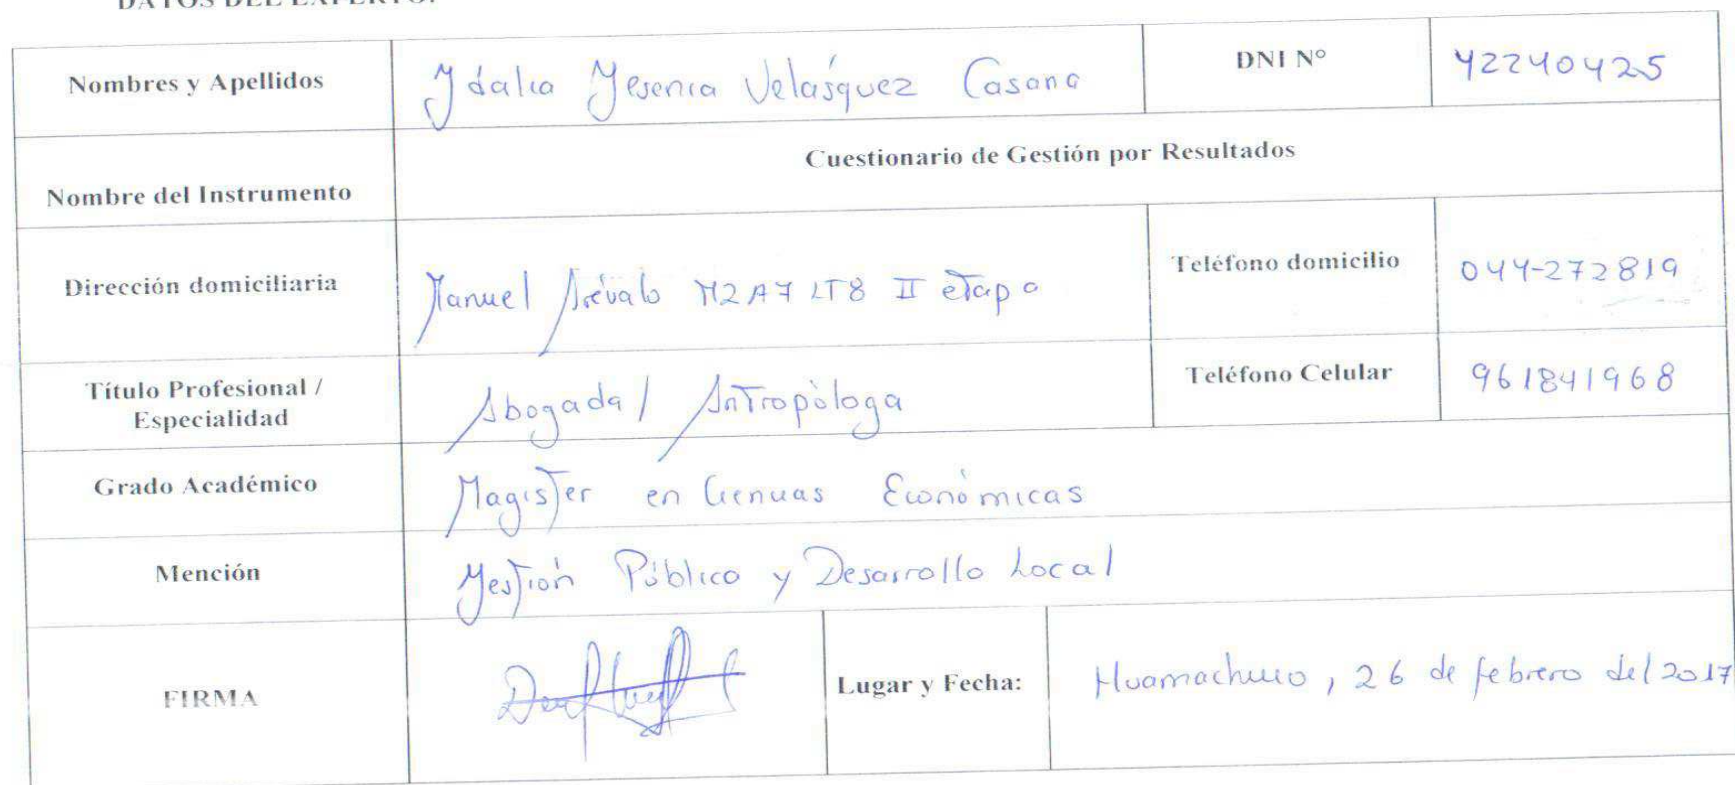 DATOS DEL EXPERTO:
Nombres y Apellidos Ydalia Yesenia Velásquez Casana DNI N° 42240425
Nombre del Instrumento Cuestionario de Gestión por Resultados
Dirección domiciliaria Manuel Arévalo MZ A7 LT8 II etapa Teléfono domicilio 044-272819
Título Profesional / Especialidad Abogada / Antropóloga Teléfono Celular 961841968
Grado Académico Magister en Ciencias Económicas
Mención Gestión Pública y Desarrollo Local
FIRMA Lugar y Fecha: Huamachuco, 26 de febrero del 2017